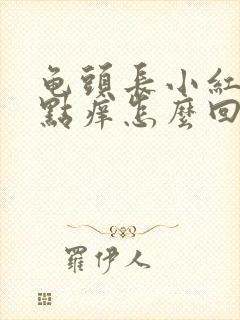 龟頭長小紅
點痒怎麼回
羅伊人